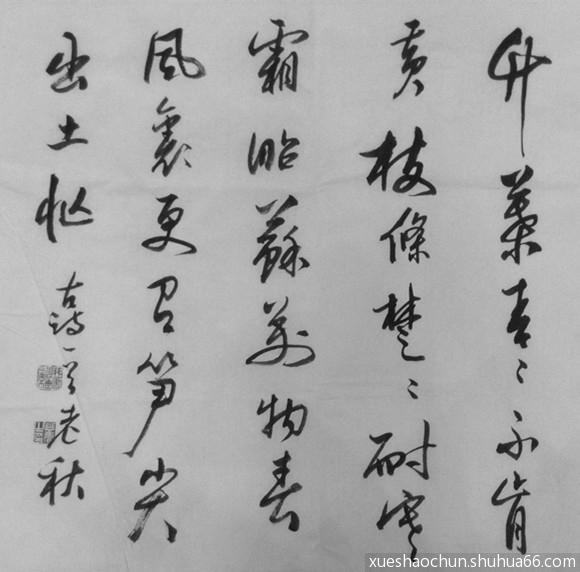 竹葉青々不肯
黄枝條楚々耐寒
霜昭蘇萬物春
風裏更有笋尖
出土忙
古詩一首老秋
xueshaochun.shuhua66.com